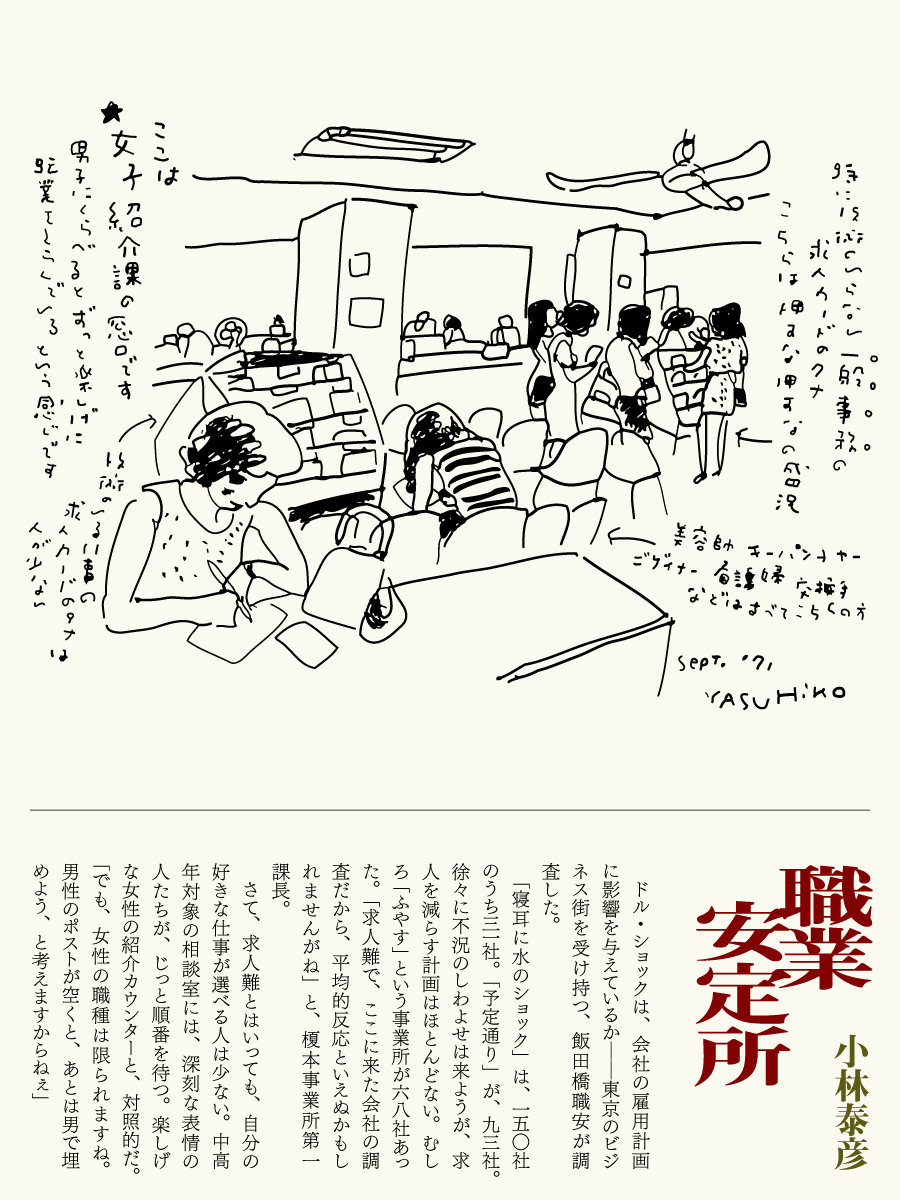 特に技術のいらない一般事務の
求人カードのタナ
こちらは押すな押すなの盛況
ここは
★女子紹介課の窓口です
男子にくらべるとずっと楽しげに
職業をえらんでいるという感じです
技術のいる仕事の
求人カードのタナは
人が少ない
美容師 キーパンチャー
デザイナー 看護婦 交換手
などはすべてこちらの方
SEPT. '71
YASUHiKO
職業
安定所
小林泰彦
ドル・ショックは、会社の雇用計画
に影響を与えているか――東京のビジ
ネス街を受け持つ、飯田橋職安が調
査した。
「寝耳に水のショック」は、一五〇社
のうち三二社。「予定通り」が、九三社。
徐々に不況のしわよせは来ようが、求
人を減らす計画はほとんどない。むし
ろ「ふやす」という事業所が六八社あっ
た。「求人難で、ここに来た会社の調
査だから、平均的反応といえぬかもし
れませんがね」と、榎本事業所第一
課長。
さて、求人難とはいっても、自分の
好きな仕事が選べる人は少ない。中高
年対象の相談室には、深刻な表情の
人たちが、じっと順番を待つ。楽しげ
な女性の紹介カウンターと、対照的だ。
「でも、女性の職種は限られますね。
男性のポストが空くと、あとは男で埋
めよう、と考えますからねぇ」